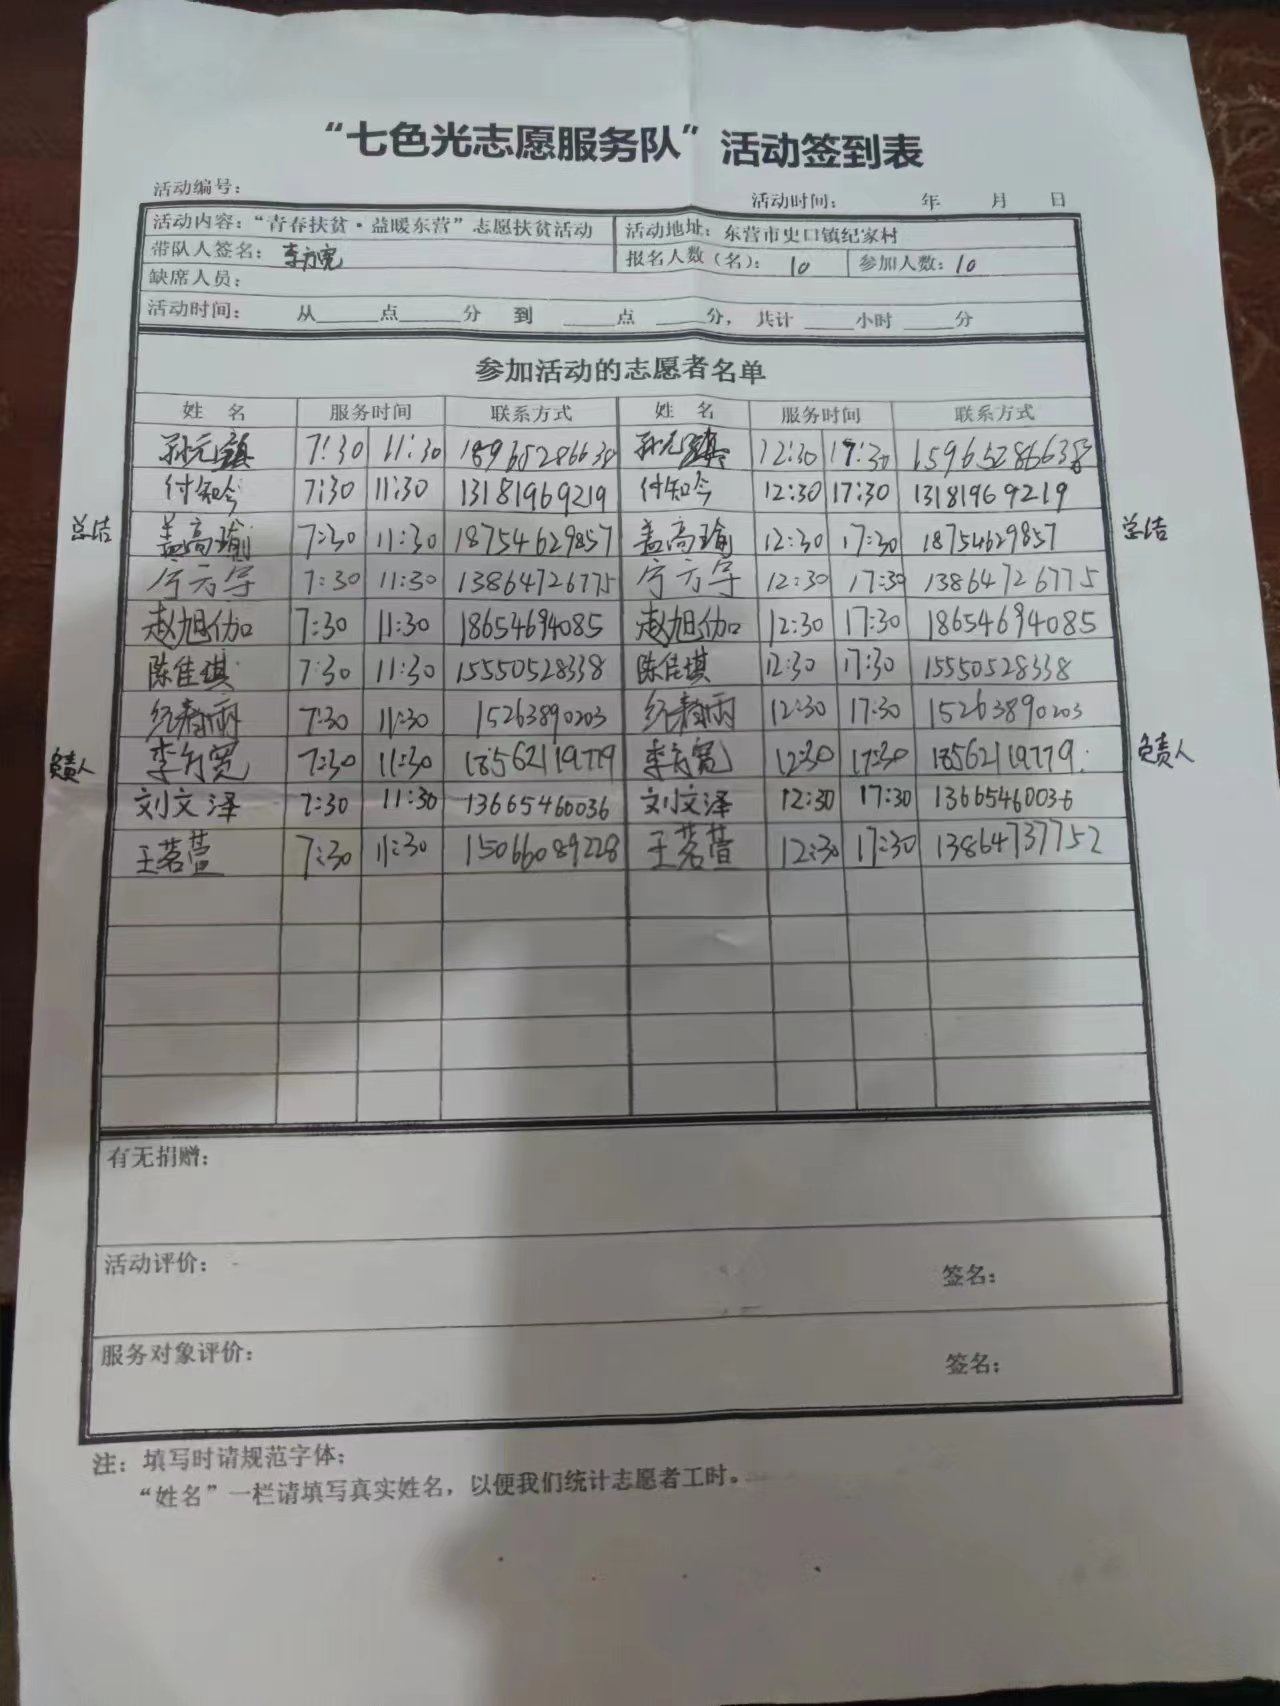 “七色光志愿服务队”活动签到表
活动编号： 活动时间： 年 月 日
活动内容：“青春扶贫·益暖东营”志愿扶贫活动 活动地址：东营市史口镇纪家村
带队人签名： 报名人数（名）：10 参加人数：10
缺席人员：
活动时间： 从____点____分 到 ____点 ____分，共计 ____小时 ____分
参加活动的志愿者名单
姓 名 服务时间 联系方式 姓 名 服务时间 联系方式
7:30 11:30 12:30 17:30
付知今 7:30 11:30 13181969219 付知今 12:30 17:30 13181969219
总结 盖高瑜 7:30 11:30 18754629857 盖高瑜 12:30 17:30 18754629857 总结
7:30 11:30 13864726775 12:30 17:30 13864726775
赵旭伽 7:30 11:30 18654694085 赵旭伽 12:30 17:30 18654694085
陈佳琪 7:30 11:30 15550528338 陈佳琪 12:30 17:30 15550528338
7:30 11:30 15263890203 12:30 17:30 15263890203
负责人 7:30 11:30 18562119779 12:30 17:30 18562119779 负责人
刘文泽 7:30 11:30 13665460036 刘文泽 12:30 17:30 13665460036
王茗萱 7:30 11:30 15066089228 王茗萱 12:30 17:30 13864737752
有无捐赠：
活动评价： 签名：
服务对象评价： 签名：
注：填写时请规范字体；
“姓名”一栏请填写真实姓名，以便我们统计志愿者工时。